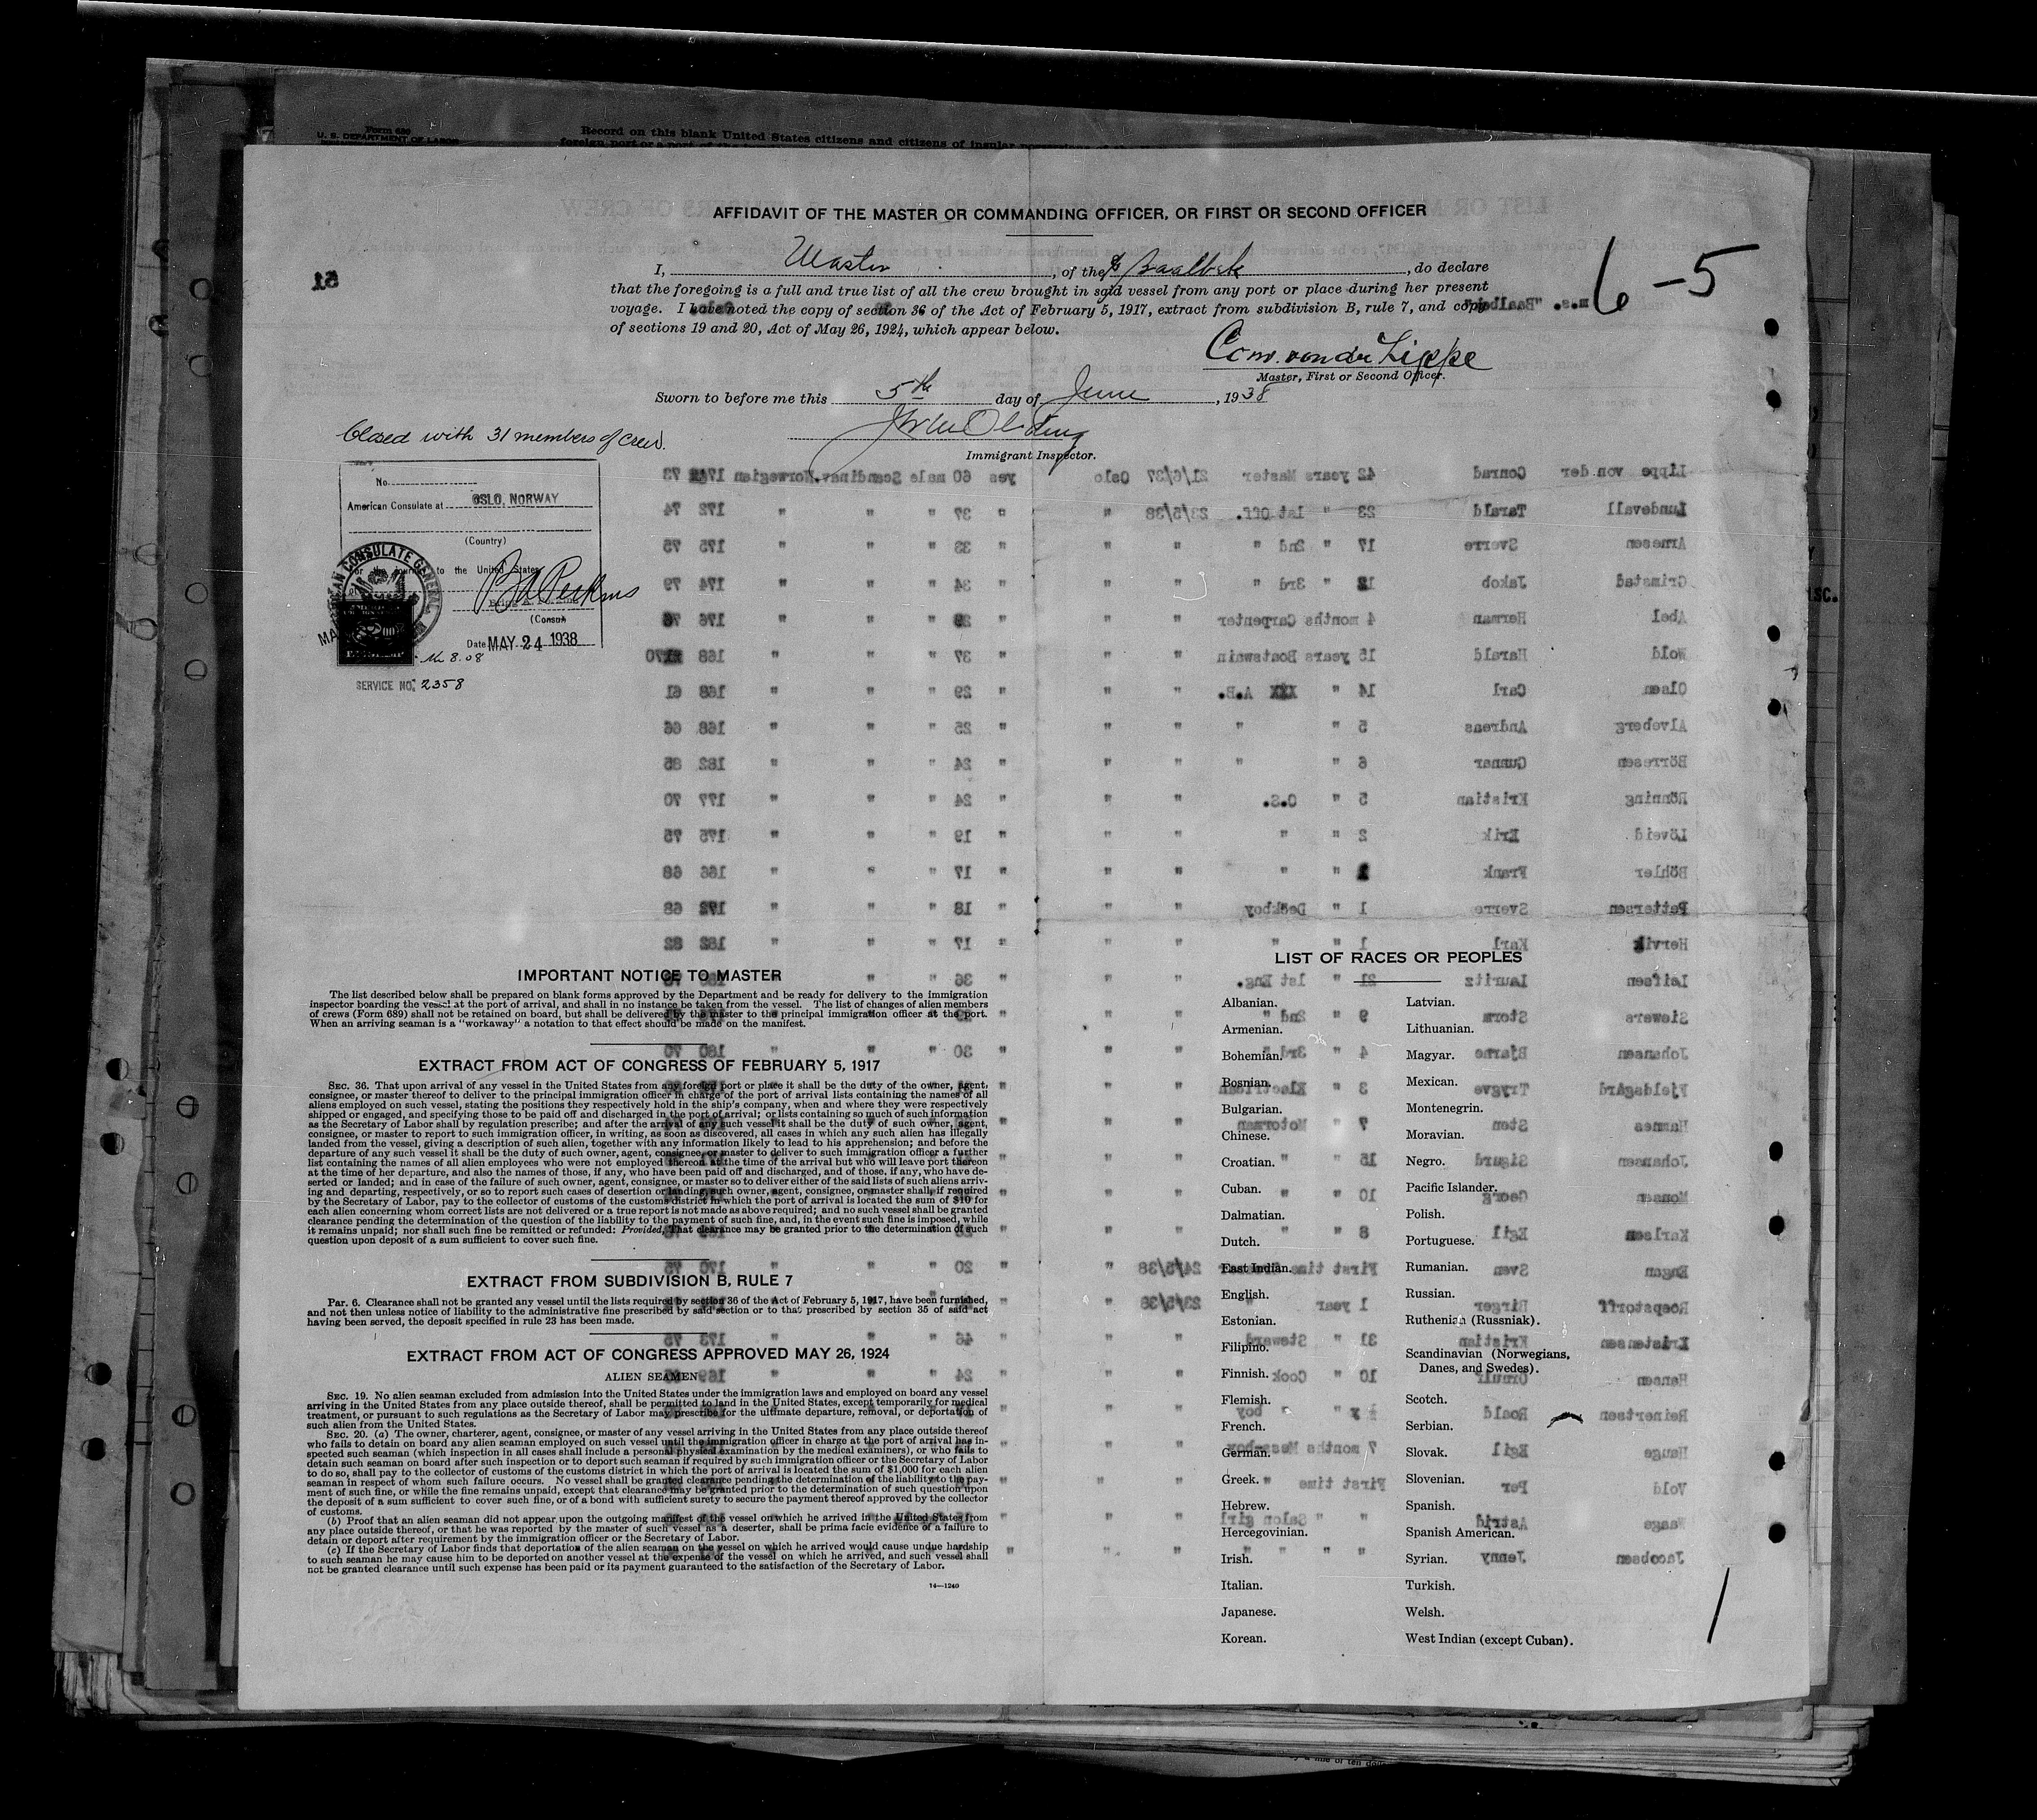 Form 689
U. S. DEPARTMENT OF LABOR
Record on this blank United States citizens and citizens of insular possessions of the
AFFIDAVIT OF THE MASTER OR COMMANDING OFFICER, OR FIRST OR SECOND OFFICER
I, Master, of the Baalbek, do declare
that the foregoing is a full and true list of all the crew brought in said vessel from any port or place during her present
voyage. I have noted the copy of section 36 of the Act of February 5, 1917, extract from subdivision B, rule 7, and copy
of sections 19 and 20, Act of May 26, 1924, which appear below.
6-5
m.s. "Baalbek"
51
Con. von der Lippe
Master, First or Second Officer.
Sworn to before me this 5th day of June, 1938
Immigrant Inspector.
Closed with 31 members of crew.
No.
American Consulate at OSLO, NORWAY
(Country)
For the journey to the United States
(Consul)
Date MAY 24 1938
SERVICE NO. 2358
Lippe von der Conrad 42 years Master 21/6/37 Oslo yes 60 male Scandinav. Norwegian 73
Lundevall Tarald 23 " 1st Off. 23/5/38 " " 37 " " " 172 74
Arnesen Sverre 17 " 2nd " " " " 38 " " " 175 75
Grimstad Jakob 12 " 3rd " " " " 34 " " " 174 79
Abel Herman 4 months Carpenter " " " 29 " " " 176
Wold Harald 15 years Boatswain " " " 37 " " " 168 70
Olsen Carl 14 " XXX A.B. " " " 29 " " " 168 61
Alveberg Andreas 5 " " " " " 25 " " " 168 66
Börresen Gunnar 6 " " " " " 24 " " " 182 85
Rönning Kristian 5 " O.S. " " " 24 " " " 177 70
Löveid Erik 2 " " " " " 19 " " " 175 75
Böhler Frank " " " " " 17 " " " 166 68
Pettersen Sverre 1 " Deckboy " " " 18 " " " 172 68
Hervik Karl 1 " " " " " 17 " " " 182 82
Leifsen Lauritz 21 " 1st Eng. " " " 36 "
Siewers Storm 9 " 2nd " " "
Johansen Bjarne 4 " 3rd " " " " 30 " " " 180 70
Fjeldsgård Trygve 3 " Electrician " "
Hannes Sten 7 " Motorman " "
Johansen Sigurd 15 " " " "
Monsen Georg 10 " " " "
Karlsen Egil 8 " " " "
Engan Sven First time 24/5/38 " " 20 " " " 170 75
Roepstorff Birger 1 year " 23/5/38 "
Kristensen Kristian 31 " Steward " " " 46 " " " 173 75
Hansen Ormulf 10 " Cook " " " 24 " " " 169
Reinertsen Roald " boy " "
Hauge Egil 7 months Mess-boy " "
Vold Per First time " " "
Waage Astrid " " Salon girl " "
Jacobsen Jenny " " " " " " "
IMPORTANT NOTICE TO MASTER
The list described below shall be prepared on blank forms approved by the Department and be ready for delivery to the immigration
inspector boarding the vessel at the port of arrival, and shall in no instance be taken from the vessel. The list of changes of alien members
of crews (Form 689) shall not be retained on board, but shall be delivered by the master to the principal immigration officer at the port.
When an arriving seaman is a "workaway" a notation to that effect should be made on the manifest.
EXTRACT FROM ACT OF CONGRESS OF FEBRUARY 5, 1917
SEC. 36. That upon arrival of any vessel in the United States from any foreign port or place it shall be the duty of the owner, agent,
consignee, or master thereof to deliver to the principal immigration officer in charge of the port of arrival lists containing the names of all
aliens employed on such vessel, stating the positions they respectively hold in the ship's company, when and where they were respectively
shipped or engaged, and specifying those to be paid off and discharged in the port of arrival; or lists containing so much of such information
as the Secretary of Labor shall by regulation prescribe; and after the arrival of any such vessel it shall be the duty of such owner, agent,
consignee, or master to report to such immigration officer, in writing, as soon as discovered, all cases in which any such alien has illegally
landed from the vessel, giving a description of such alien, together with any information likely to lead to his apprehension; and before the
departure of any such vessel it shall be the duty of such owner, agent, consignee, or master to deliver to such immigration officer a further
list containing the names of all alien employees who were not employed thereon at the time of the arrival but who will leave port thereon
at the time of her departure, and also the names of those, if any, who have been paid off and discharged, and of those, if any, who have de-
serted or landed; and in case of the failure of such owner, agent, consignee, or master so to deliver either of the said lists of such aliens arriv-
ing and departing, respectively, or so to report such cases of desertion or landing, such owner, agent, consignee, or master shall, if required
by the Secretary of Labor, pay to the collector of customs of the customs district in which the port of arrival is located the sum of $10 for
each alien concerning whom correct lists are not delivered or a true report is not made as above required; and no such vessel shall be granted
clearance pending the determination of the question of the liability to the payment of such fine, and, in the event such fine is imposed, while
it remains unpaid; nor shall such fine be remitted or refunded: Provided, That clearance may be granted prior to the determination of such
question upon deposit of a sum sufficient to cover such fine.
EXTRACT FROM SUBDIVISION B, RULE 7
Par. 6. Clearance shall not be granted any vessel until the lists required by section 36 of the Act of February 5, 1917, have been furnished,
and not then unless notice of liability to the administrative fine prescribed by said section or to that prescribed by section 35 of said act
having been served, the deposit specified in rule 23 has been made.
EXTRACT FROM ACT OF CONGRESS APPROVED MAY 26, 1924
ALIEN SEAMEN
SEC. 19. No alien seaman excluded from admission into the United States under the immigration laws and employed on board any vessel
arriving in the United States from any place outside thereof, shall be permitted to land in the United States, except temporarily for medical
treatment, or pursuant to such regulations as the Secretary of Labor may prescribe for the ultimate departure, removal, or deportation of
such alien from the United States.
SEC. 20. (a) The owner, charterer, agent, consignee, or master of any vessel arriving in the United States from any place outside thereof
who fails to detain on board any alien seaman employed on such vessel until the immigration officer in charge at the port of arrival has in-
spected such seaman (which inspection in all cases shall include a personal physical examination by the medical examiners), or who fails to
detain such seaman on board after such inspection or to deport such seaman if required by such immigration officer or the Secretary of Labor
to do so, shall pay to the collector of customs of the customs district in which the port of arrival is located the sum of $1,000 for each alien
seaman in respect of whom such failure occurs. No vessel shall be granted clearance pending the determination of the liability to the pay-
ment of such fine, or while the fine remains unpaid, except that clearance may be granted prior to the determination of such question upon
the deposit of a sum sufficient to cover such fine, or of a bond with sufficient surety to secure the payment thereof approved by the collector
of customs.
(b) Proof that an alien seaman did not appear upon the outgoing manifest of the vessel on which he arrived in the United States from
any place outside thereof, or that he was reported by the master of such vessel as a deserter, shall be prima facie evidence of a failure to
detain or deport after requirement by the immigration officer or the Secretary of Labor.
(c) If the Secretary of Labor finds that deportation of the alien seaman on the vessel on which he arrived would cause undue hardship
to such seaman he may cause him to be deported on another vessel at the expense of the vessel on which he arrived, and such vessel shall
not be granted clearance until such expense has been paid or its payment guaranteed to the satisfaction of the Secretary of Labor.
14—1240
LIST OF RACES OR PEOPLES
Albanian.
Armenian.
Bohemian.
Bosnian.
Bulgarian.
Chinese.
Croatian.
Cuban.
Dalmatian.
Dutch.
East Indian.
English.
Estonian.
Filipino.
Finnish.
Flemish.
French.
German.
Greek.
Hebrew.
Hercegovinian.
Irish.
Italian.
Japanese.
Korean.
Latvian.
Lithuanian.
Magyar.
Mexican.
Montenegrin.
Moravian.
Negro.
Pacific Islander.
Polish.
Portuguese.
Rumanian.
Russian.
Ruthenian (Russniak).
Scandinavian (Norwegians,
Danes, and Swedes).
Scotch.
Serbian.
Slovak.
Slovenian.
Spanish.
Spanish American.
Syrian.
Turkish.
Welsh.
West Indian (except Cuban).